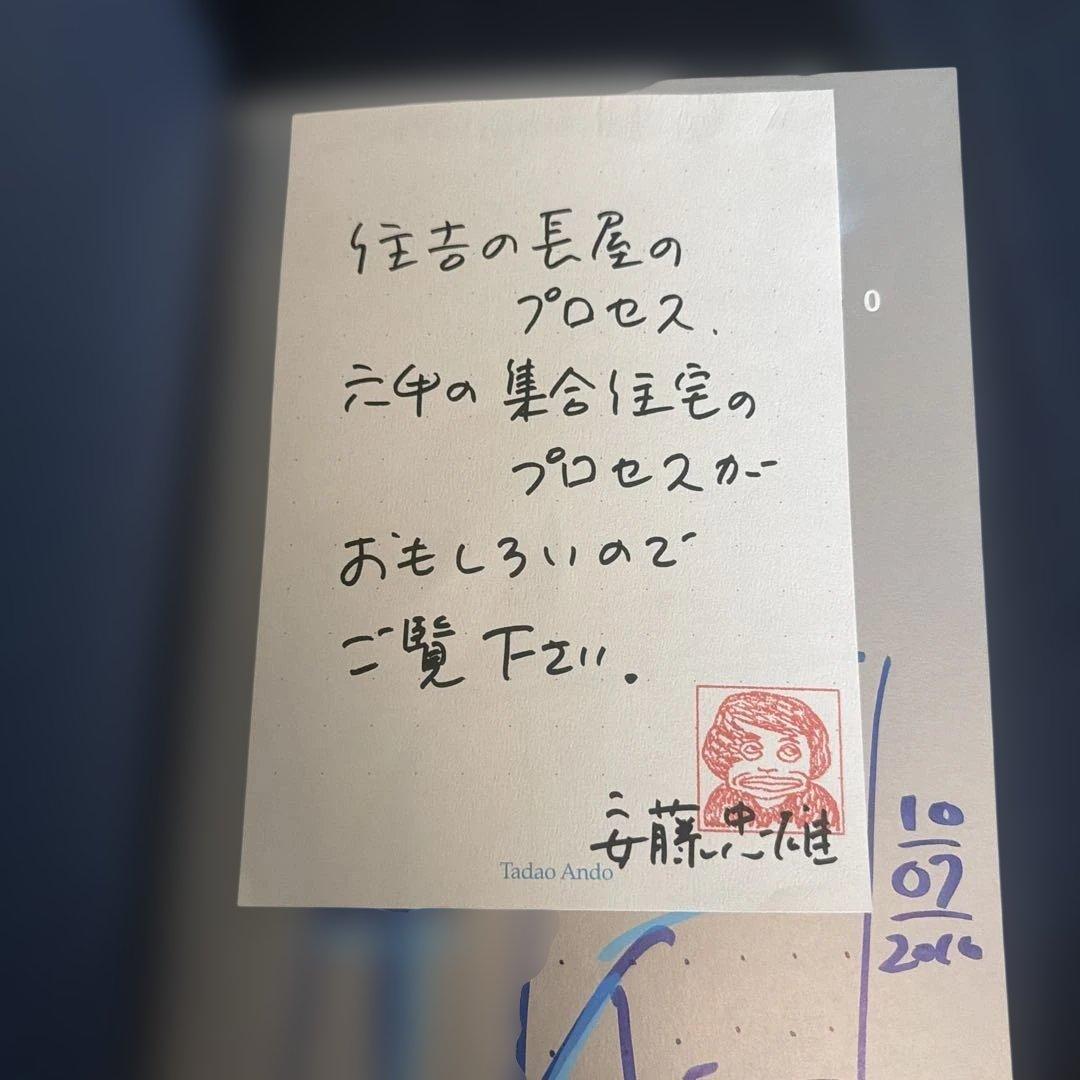 住吉の長屋の
プロセス、
六甲の集合住宅の
プロセスが
おもしろいので
ご覧下さい。
安藤忠雄
Tadao Ando
0
10
07